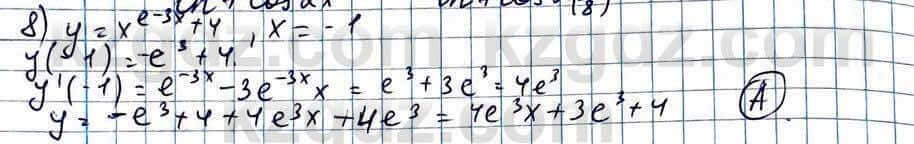 8) y = xe⁻³ˣ + 4, x = -1
y(-1) = -e³ + 4.
y'(-1) = e⁻³ˣ - 3e⁻³ˣx = e³ + 3e³ = 4e³
y = -e³ + 4 + 4e³x + 4e³ = 4e³x + 3e³ + 4 (A)